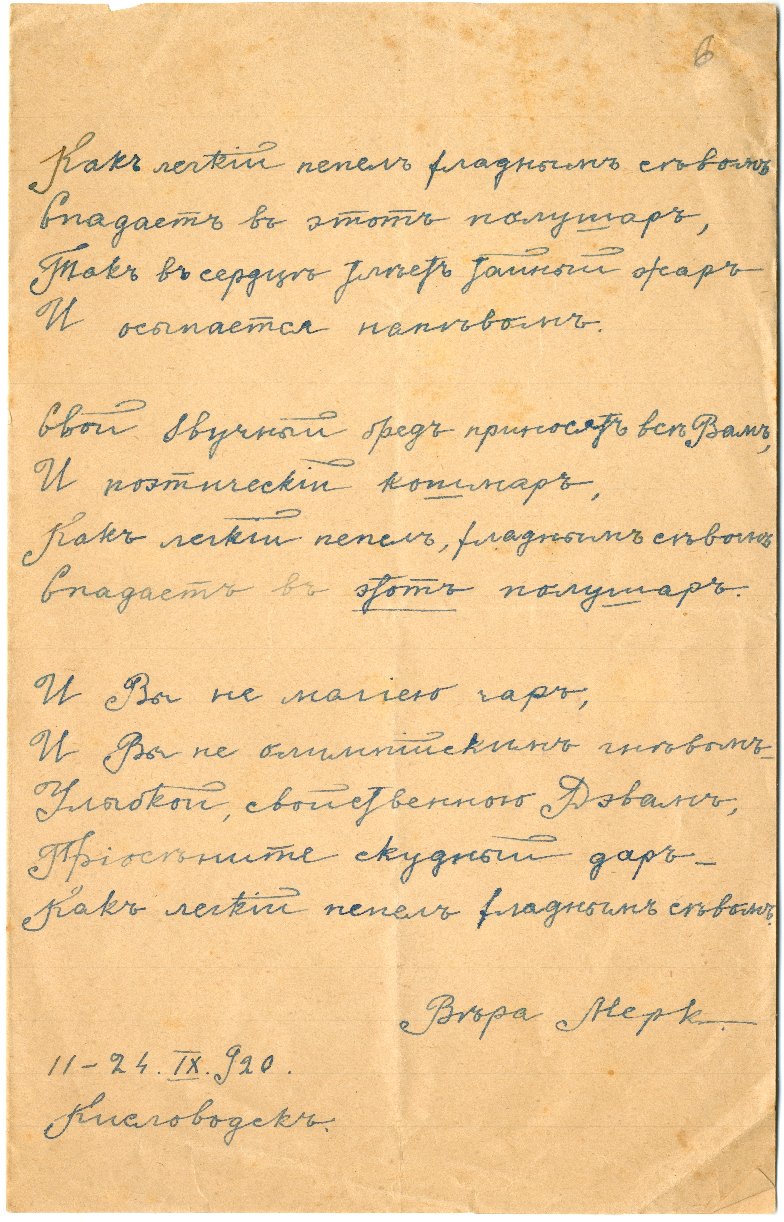 6
Какъ легкій пепелъ хладнымъ сѣвомъ
Спадаетъ въ этотъ полушаръ,
Такъ въ сердцѣ тлѣетъ тайный жаръ
И осыпается напѣвомъ.
Свой звучный бредъ приносятъ всѣ Вамъ,
И поэтическій кошмаръ,
Какъ легкій пепелъ, хладнымъ сѣвомъ
Спадаетъ въ этотъ полушаръ.
И Вы не магіею чаръ,
И Вы не олимпійскимъ гнѣвомъ –
Улыбкой, свойственною Дэвамъ,
Пріосѣните скудный даръ –
Какъ легкій пепелъ хладнымъ сѣвомъ.
Вѣра Мерк
11 – 24. IX. 920.
Кисловодскъ.